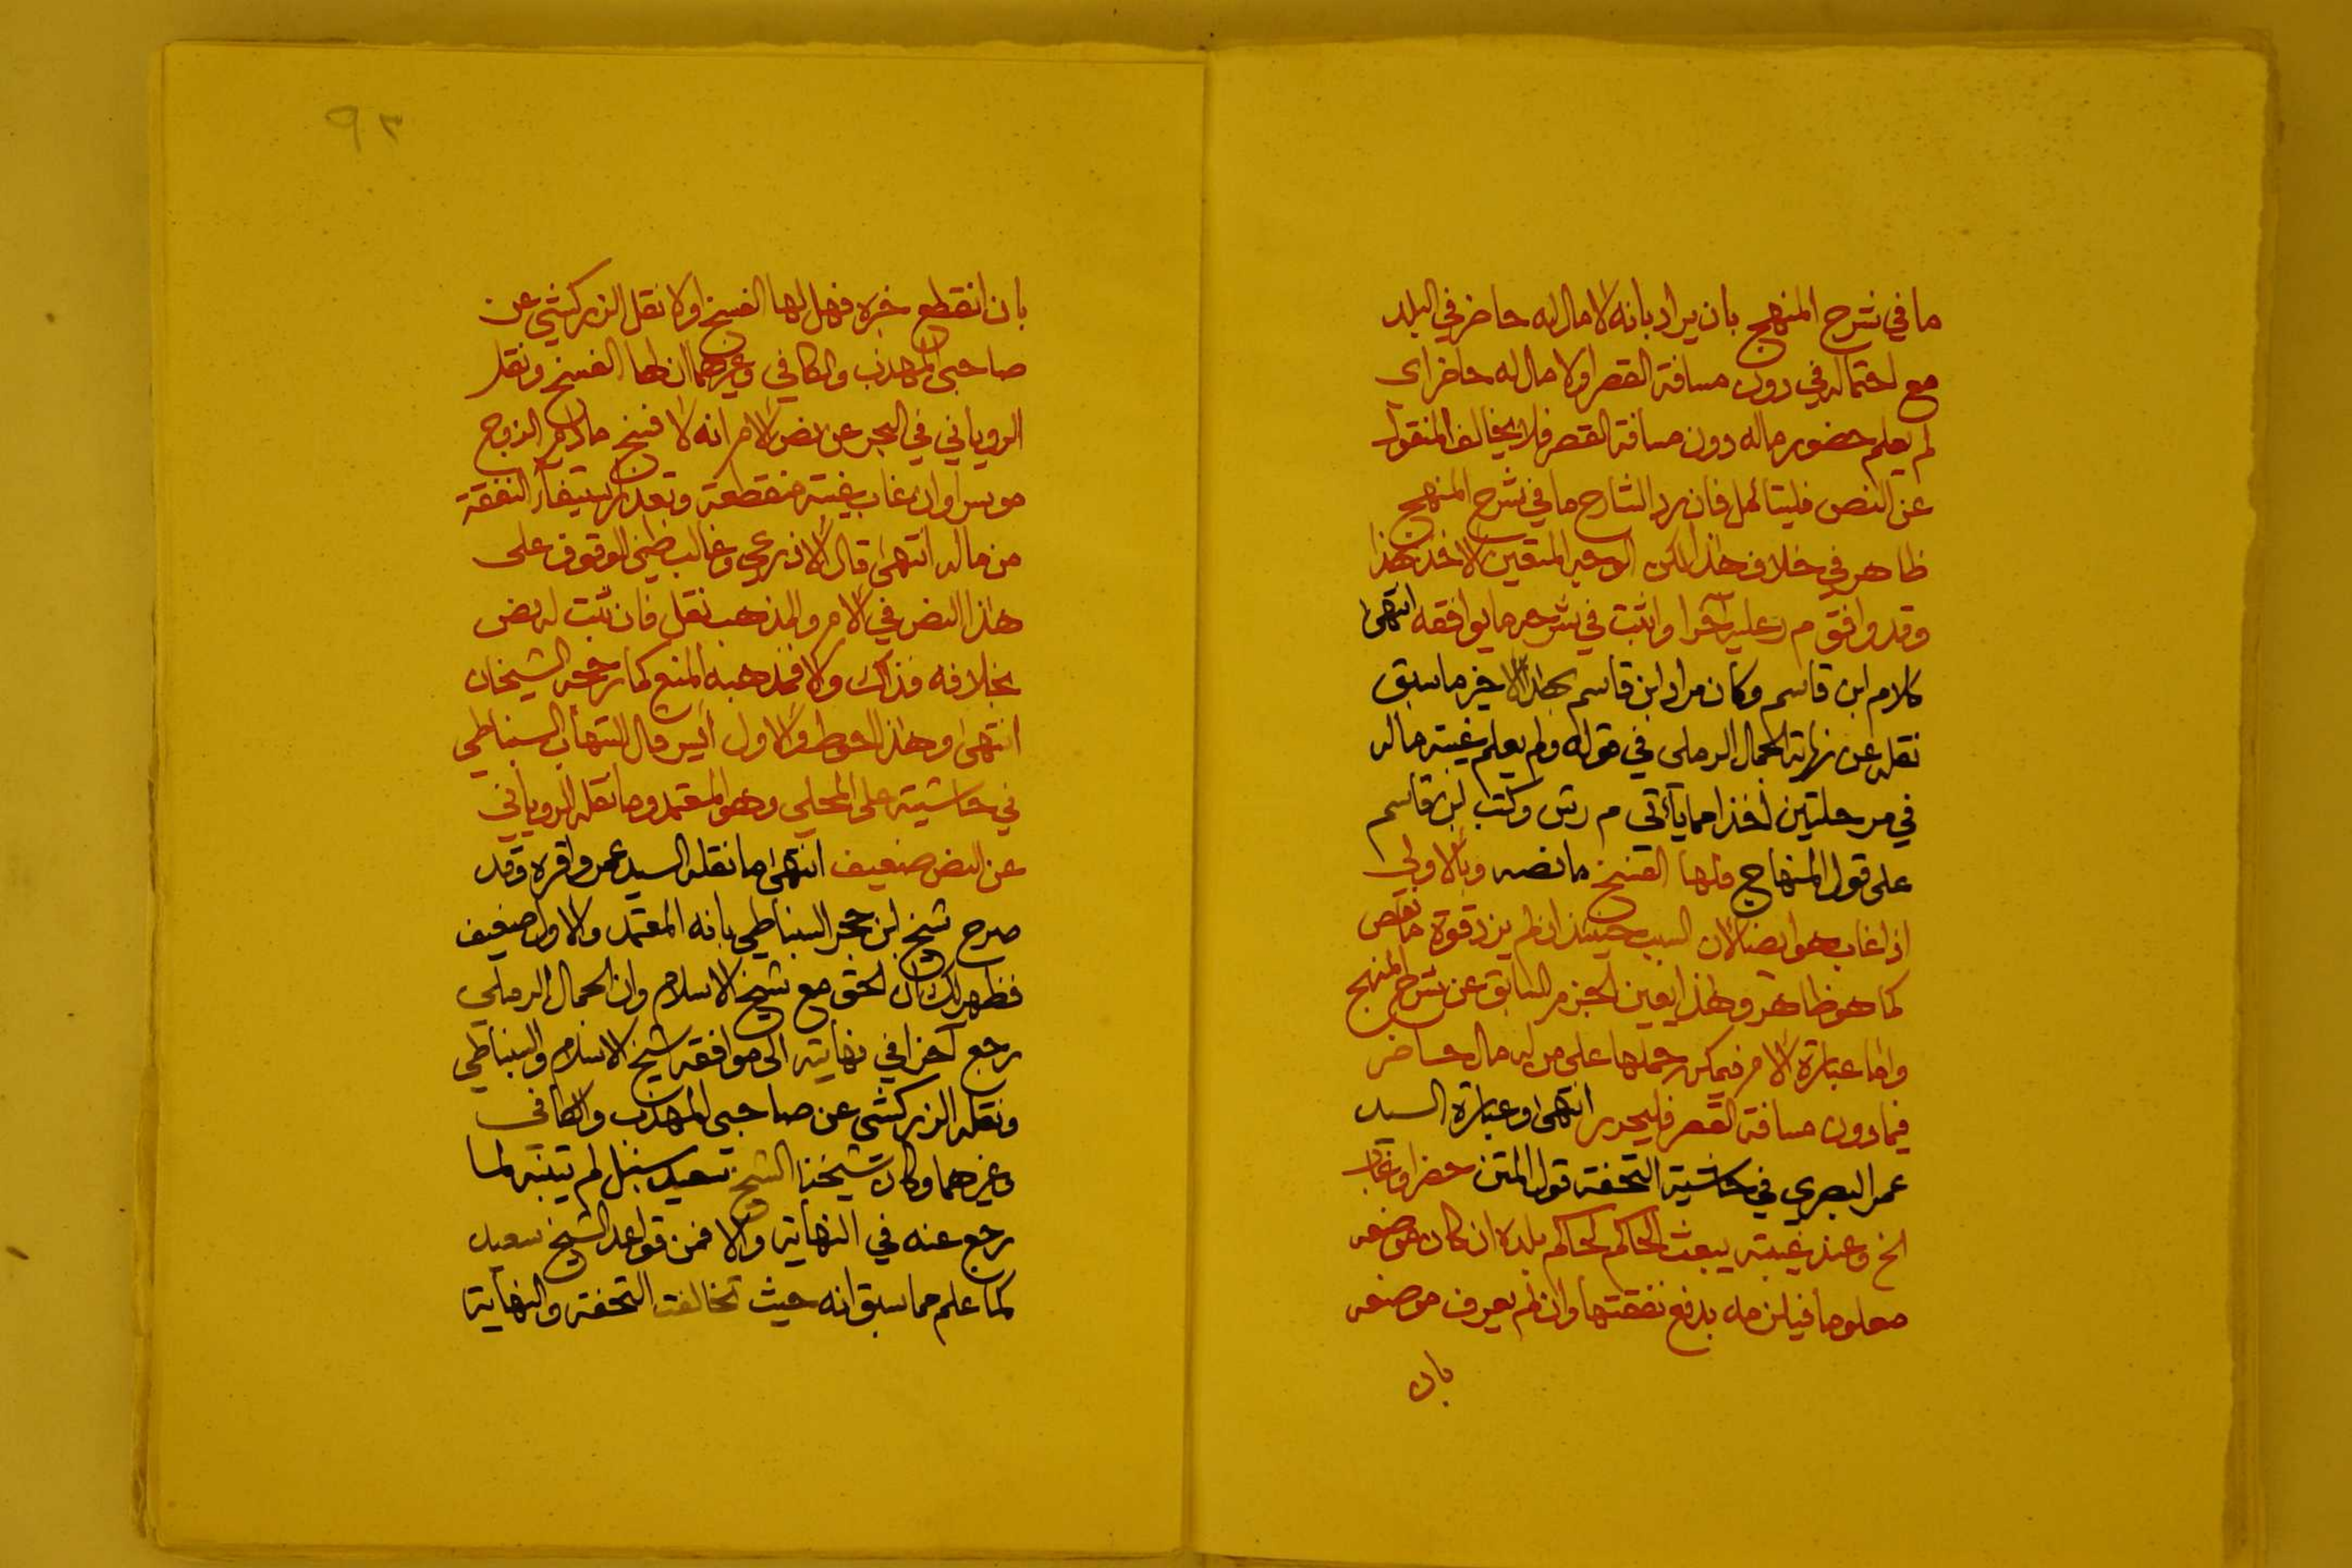 ما في شرح المنهج بان يراد بانه لا مال له حاضر في البلد
مع احتماله في دون مسافة القصر او لا مال له حاضر اي
لم يعلم حضور ماله دون مسافة القصر فلا يخالف المنقول
عن النص فليتامل فان رد الشارح ما في شرح المنهج
ظاهر في خلاف هذا لكن الوجه المتعين الاخذ بهذا
وقد وافق م ر عليه آخرا واثبت في شرحه ما يوافقه انتهى
كلام ابن قاسم وكان مراد ابن قاسم بهذا الاخير ما سبق
نقله عن نهاية الجمال الرملي في قوله ولم يعلم غيبة ماله
في مرحلتين اخذا مما يأتي م ر ش وكتب ابن قاسم
على قول المنهاج فلها الفسخ ما نصه وبالاولى
اذا غاب هو ايضا لان السبب حينئذ ان لم يزد قوة ما نقص
كما هو ظاهر وهذا يعين الجزم السابق عن شرح المنهج
واما عبارة الام فيمكن حملها على من له مال حاضر
فيما دون مسافة القصر فليحرر انتهى وعبارة السيد
عمر البصري في حاشية التحفة قول المتن حضر او غاب
الخ وعند غيبته يبعث الحاكم لحاكم بلده ان كان موضعه
معلوما فيلزمه بدفع نفقتها وان لم يعرف موضعه
بان
٩٢
بان انقطع خبره فهل لها الفسخ او لا نقل الزركشي عن
صاحبي المهذب والكافي وغيرهما ان لها الفسخ ونقل
الروياني في البحر عن نص الام انه لا فسخ ما دام الزوج
موسرا وان غاب غيبة منقطعة وتعذر استيفاء النفقة
من ماله انتهى قال الاذرعي وغالب ظني الوقوف على
هذا النص في الام والمذهب نقل فان ثبت له نص
بخلافه فذاك والا فمذهبه المنع كما رجحه الشيخان
انتهى وهذا احوط والاول ايسر قال الشهاب السنباطي
في حاشيته على المحلي وهو المعتمد وما نقله الروياني
عن النص ضعيف انتهى ما نقله السيد عمر واقره وقد
صرح شيخ ابن حجر السنباطي بانه المعتمد والاول ضعيف
فظهر لك ان الحق مع شيخ الاسلام وان الجمال الرملي
رجع آخرا في نهايته الى موافقة شيخ الاسلام والسنباطي
ونقله الزركشي عن صاحبي المهذب والكافي
وغيرهما وكان شيخنا الشيخ سعيد سنبل لم يتنبه لما
رجع عنه في النهاية والا فمن قواعد الشيخ سعيد
كما علم مما سبق انه حيث تخالفت التحفة والنهاية